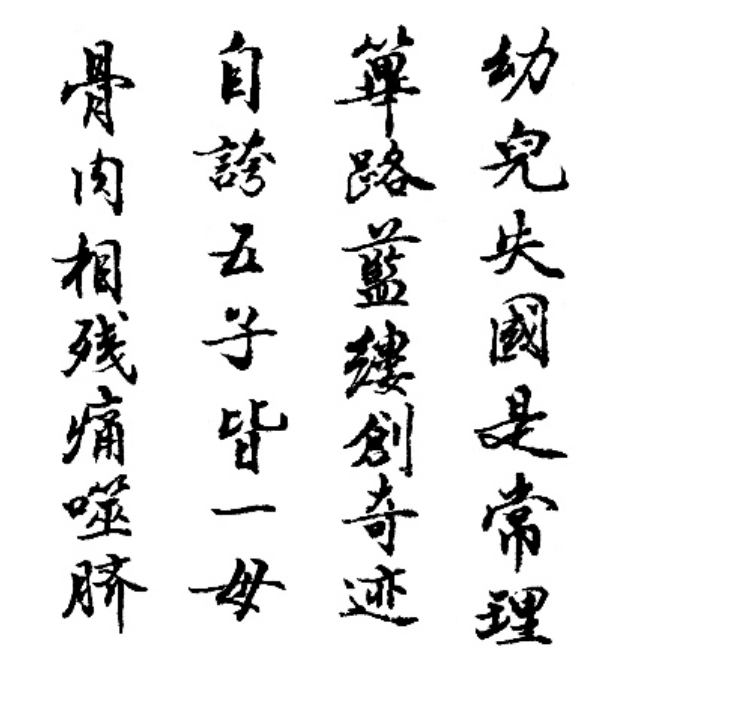 幼兒失國是常理
篳路藍縷創奇迹
自誇五子皆一母
骨肉相残痛噬脐